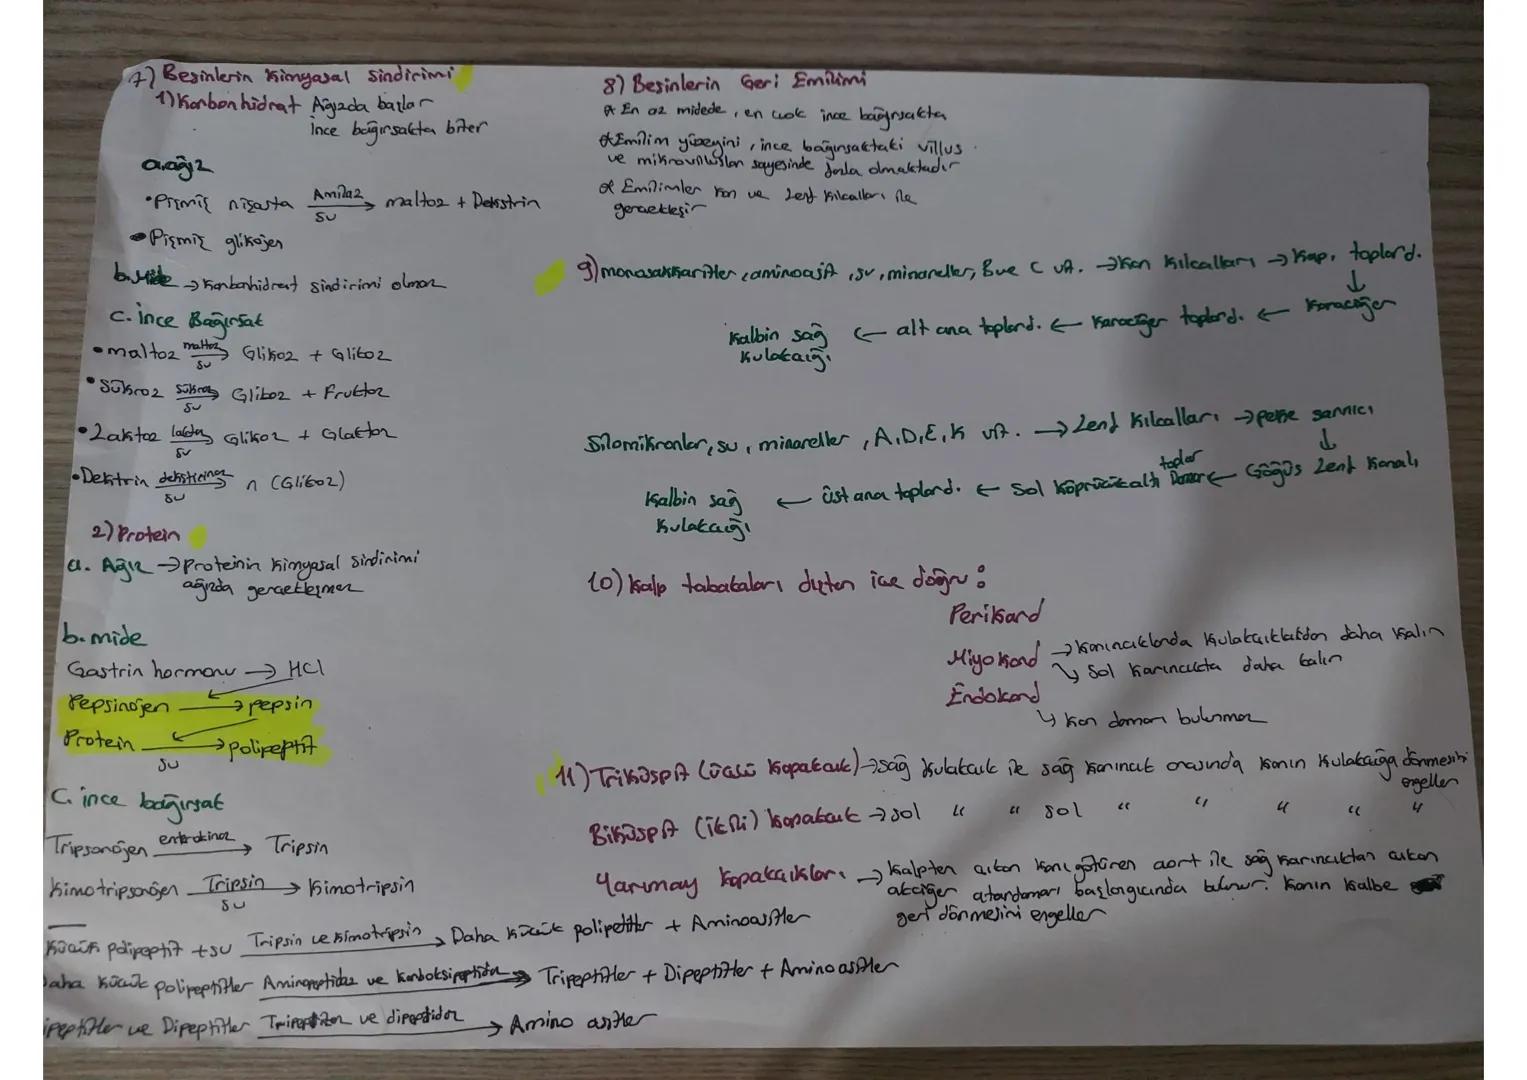 7) Besinlerin Kimyasal Sindirimi
1) Karbonhidrat Ağızda başlar
İnce bağırsakta biter
a. ağız
• Pişmiş nişasta Amilaz → maltoz + Dekstrin
su
• Pişmiş glikojen
b. Mide → Karbonhidrat sindirimi olmaz
c. İnce Bağırsak
• maltoz maltaz → Glikoz + Glikoz
su
• Sükroz sükraz → Glikoz + Fruktoz
su
• Laktoz laktaz → Glikoz + Glaktoz
su
• Dekstrin dekstrinaz → n (Glikoz)
su
2) Protein
a. Ağız → Proteinin kimyasal sindirimi
ağızda gerçekleşmez
b. mide
Gastrin hormonu → HCl
Pepsinojen → pepsin
Protein → polipeptit
su
C. ince bağırsak
Tripsonojen enterokinaz → Tripsin
Kimotripsonojen Tripsin → Kimotripsin
su
Küçük polipeptit + su Tripsin ve kimotripsin → Daha küçük polipeptitler + Aminoasitler
Daha küçük polipeptitler Aminopeptidaz ve karboksipeptidaz → Tripeptitler + Dipeptitler + Aminoasitler
ipeptitler ve Dipeptitler Tripeptidaz ve dipeptidaz → Amino asitler
8) Besinlerin Geri Emilimi
* En az midede, en çok ince bağırsakta
* Emilim yüzeyini, ince bağırsaktaki villus
ve mikrovilluslar sayesinde fazla olmaktadır
* Emilimler kan ve lenf kılcalları ile
gerçekleşir
9) monosakkaritler, aminoasit, su, minareller, B ve C vit. → Kan kılcalları → Kapı toplard.
↓
Kalbin sağ ← alt ana toplard. ← Karaciğer toplard. ← Karaciğer
kulakçığı
Silomikronlar, su, minareller, A,D,E,K vit. → Lenf kılcalları → peke sarnıcı
↓
Kalbin sağ ← üst ana toplard. ← Sol köprücükaltı toplar Damar ← Göğüs Lenf Kanalı
kulakçığı
10) Kalp tabakaları dıştan içe doğru:
Perikard
Miyokard → Karıncıklarda kulakçıklardan daha kalın
↘ Sol karıncıkta daha kalın
Endokard
↳ Kan damarı bulunmaz
11) Triküspit (üçlü kapakçık) → sağ kulakçık ile sağ karıncık arasında kanın kulakçığa dönmesini
engeller
Biküspit (ikili) kapakçık → sol " " sol " " " " "
Yarımay kapakçıkları → Kalpten çıkan kanı götüren aort ile sağ karıncıktan çıkan
akciğer atardamarı başlangıcında bulunur. Kanın kalbe
geri dönmesini engeller